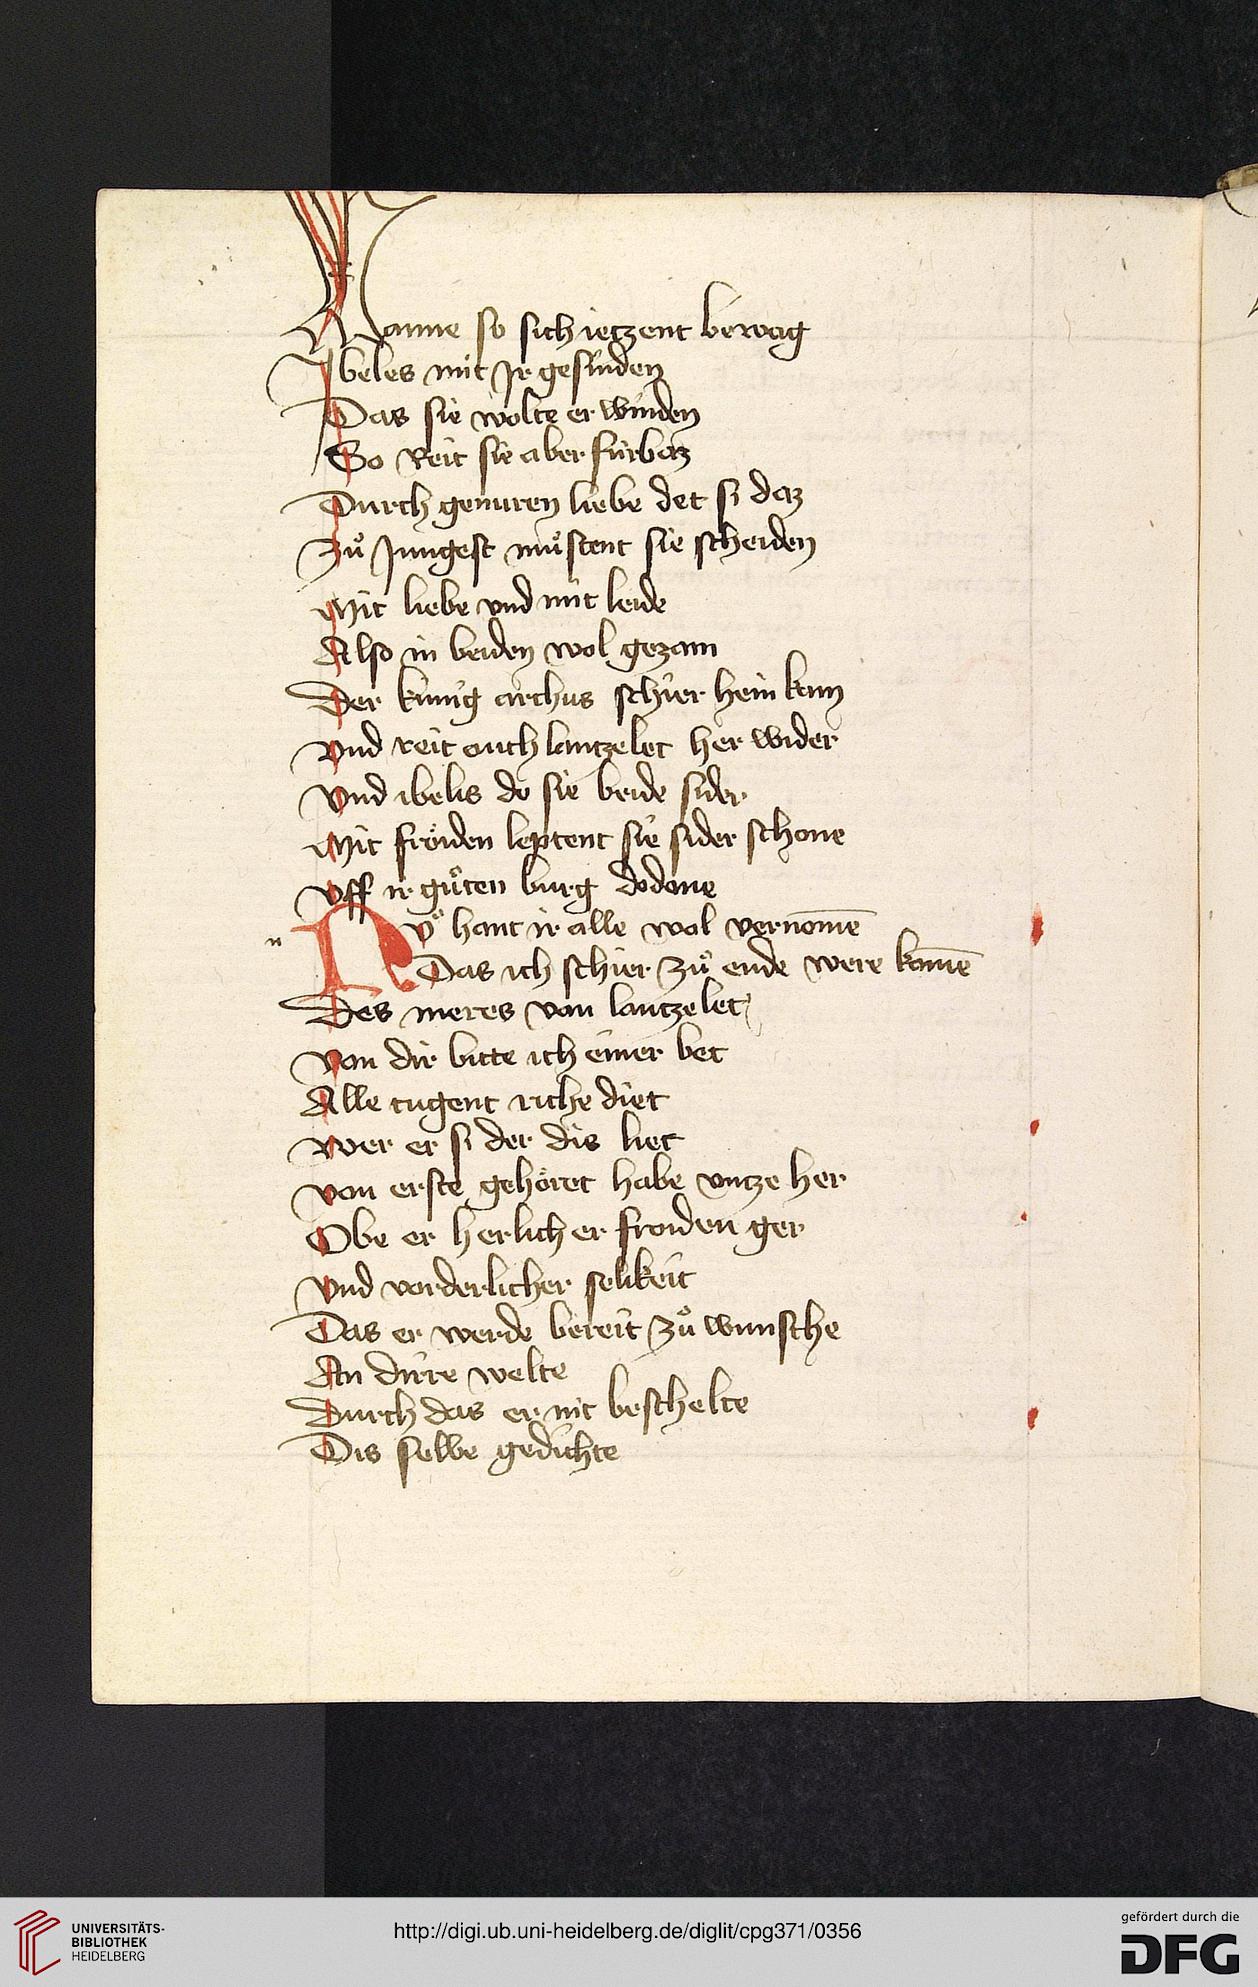 Wanne so sich ietzent bewag
Ibeles mit Ir gesinden
Das sie wolte er winden
So Reit sie aber fúrbaz
Durch genuren liebe det si daz
Zů Jungest můstent sie scheiden
Mit liebe vnd mit leide
Also in beiden wol gezam
Der kúnig arthus schier hein kam
Vnd reit ouch lantzelet her wider
Vnd ibelis do sie beide sider
Mit fröiden leptent sie sider schone
Vff ir gůten burg dodone
n
Nv̊ hant ir alle wol vernom̄e
Das ich schier zů ende were kom̄e
Des meres von lantzelet
Von dir bitte ich einer bet
Alle tugent riche diet
Wer er si der dis liet
Von erste gehöret habe vntze her
Obe er herlicher froiden ger
Vnd vorderlicher selikeit
Das er werde bereit zů wunsche
An dirre welte
Durch das er nit beschelte
Dis selbe gedichte
UNIVERSITÄTS-
BIBLIOTHEK
HEIDELBERG
http://digi.ub.uni-heidelberg.de/diglit/cpg371/0356
gefördert durch die
DFG